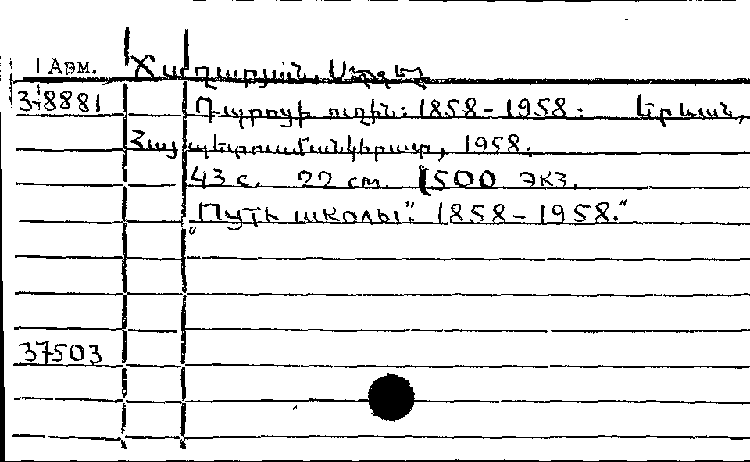 Арм. Ճաղարյան, Ստեփ
3-8881 Դպրոցի ուղին: 1858-1958: Երևան,
Հայպետուսմանկհրատ, 1958.
43 с. 22 см. 1500 экз.
"Путь школы". 1858-1958."
37503